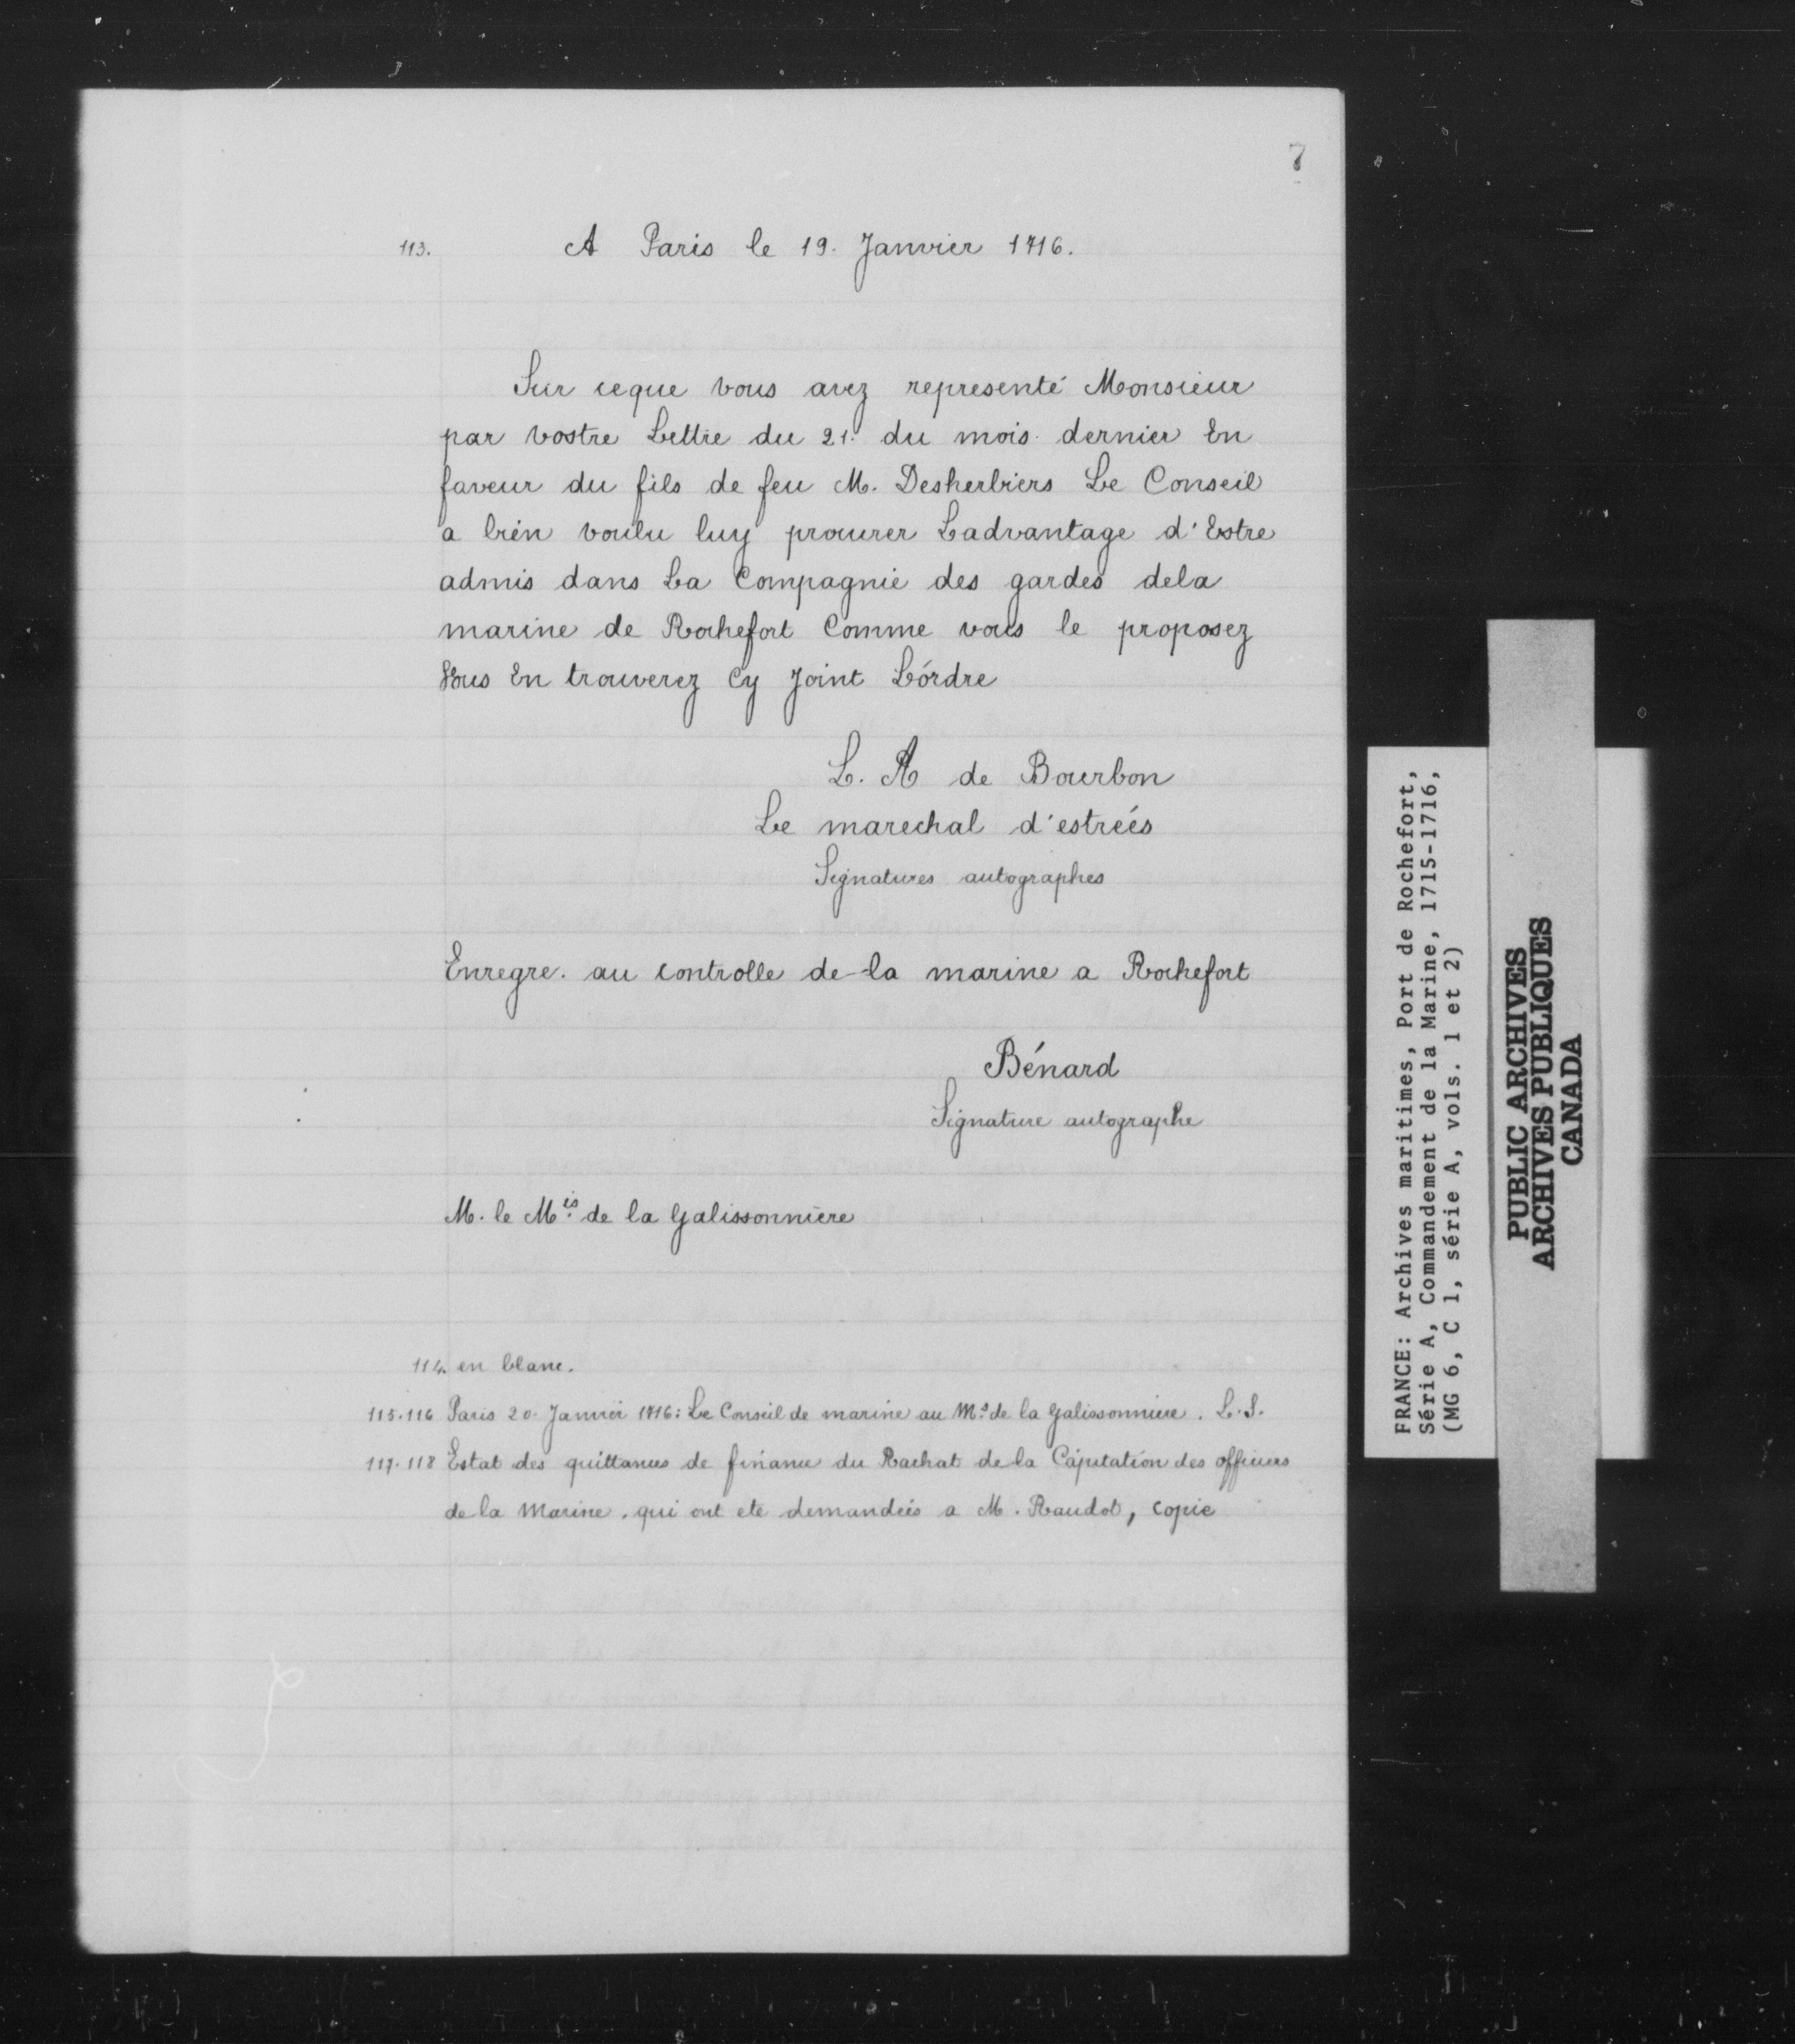 7
113. A Paris le 19. Janvier 1716.
Sur ceque vous avez representé Monsieur
par vostre Lettre du 21. du mois dernier En
faveur du fils de feu M. Desherbiers Le Conseil
a bien voulu luy procurer Ladvantage d'Estre
admis dans La Compagnie des gardes dela
marine de Rochefort Comme vous le proposez
Vous En trouverez Cy Joint L'ordre
L. A de Bourbon
Le marechal d'estrées
Signatures autographes
Enregre. au controlle de la marine a Rochefort
Bénard
Signature autographe
M. le Mis de la Galissonniere
114. en blanc.
115.116 Paris 20. Janvier 1716: Le Conseil de marine au Ms de la Galissonniere. L.S.
117.118 Estat des quittances de finance du Rachat de la Capitation des officiers
de la Marine. qui ont ete demandées a M. Raudot, copie
FRANCE: Archives maritimes, Port de Rochefort,
Série A, Commandement de la Marine, 1715-1716,
(MG 6, C 1, série A, vols. 1 et 2)
PUBLIC ARCHIVES
ARCHIVES PUBLIQUES
CANADA